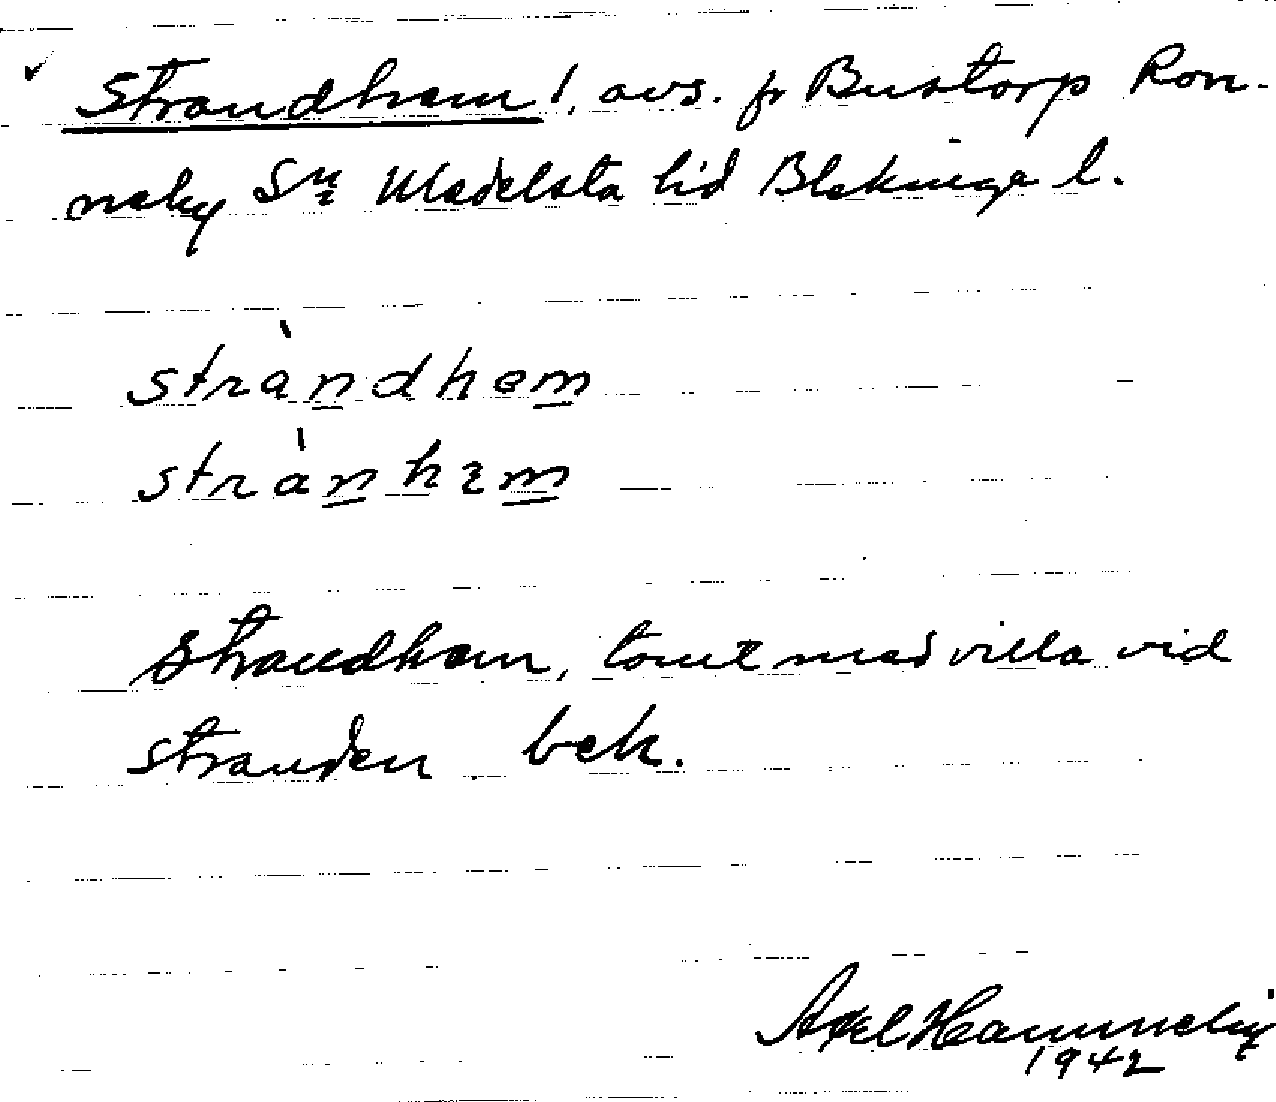 Strandhem!, avs. fr Bustorp Ron-
neby Sn Medelsta hd Blekinge l.
stràndhem
strànhem
Strandhem, tomt med villa vid
stranden bek.
Axel
1942